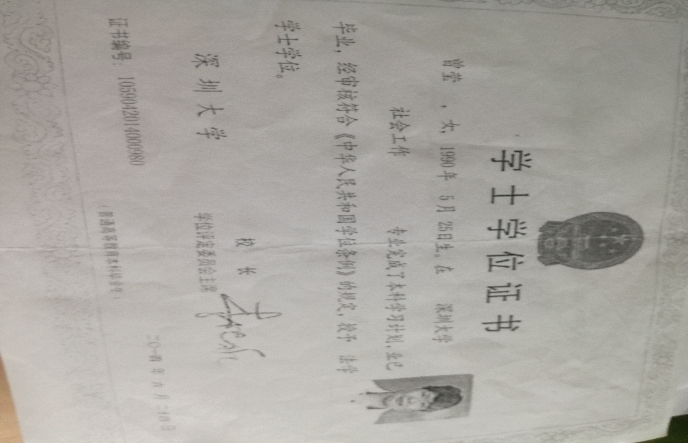 学士学位证书
曾莹 ，女，1990年 5月 25日生。在 深圳大学
社会工作 专业完成了本科学习计划，业已
毕业，经审核符合《中华人民共和国学位条例》的规定，授予 法学
学士学位。
深圳大学
校 长
学位评定委员会主席
证书编号：1059042014000980
二〇一四年 六 月 二十四日
（普通高等教育本科毕业生）